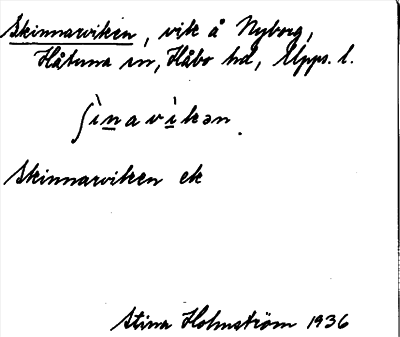 Skinnarviken, vik å Nyborg,
Håtuna sn, Håbo hd, Upps. l.
ʃìnavìkən.
Skinnarviken ek
Stina Holmström 1936